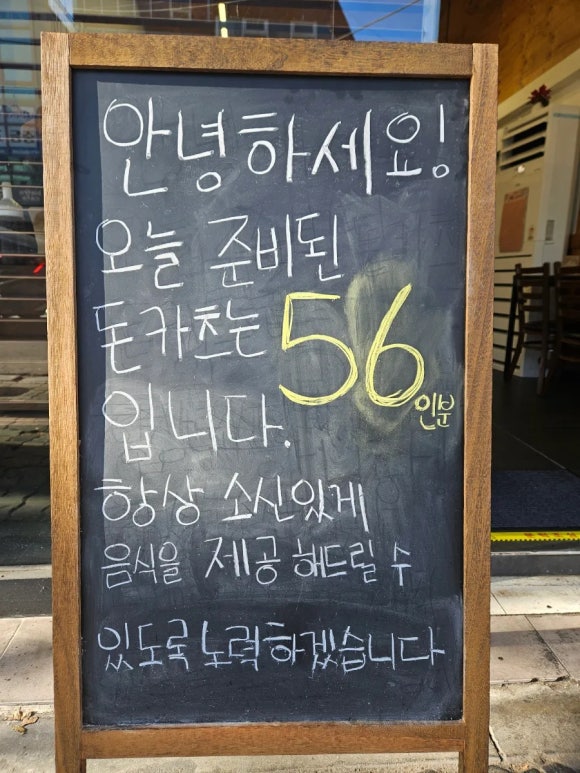 안녕하세요!
오늘 준비된
돈카츠는 56인분
입니다.
항상 소신있게
음식을 제공해드릴 수
있도록 노력하겠습니다